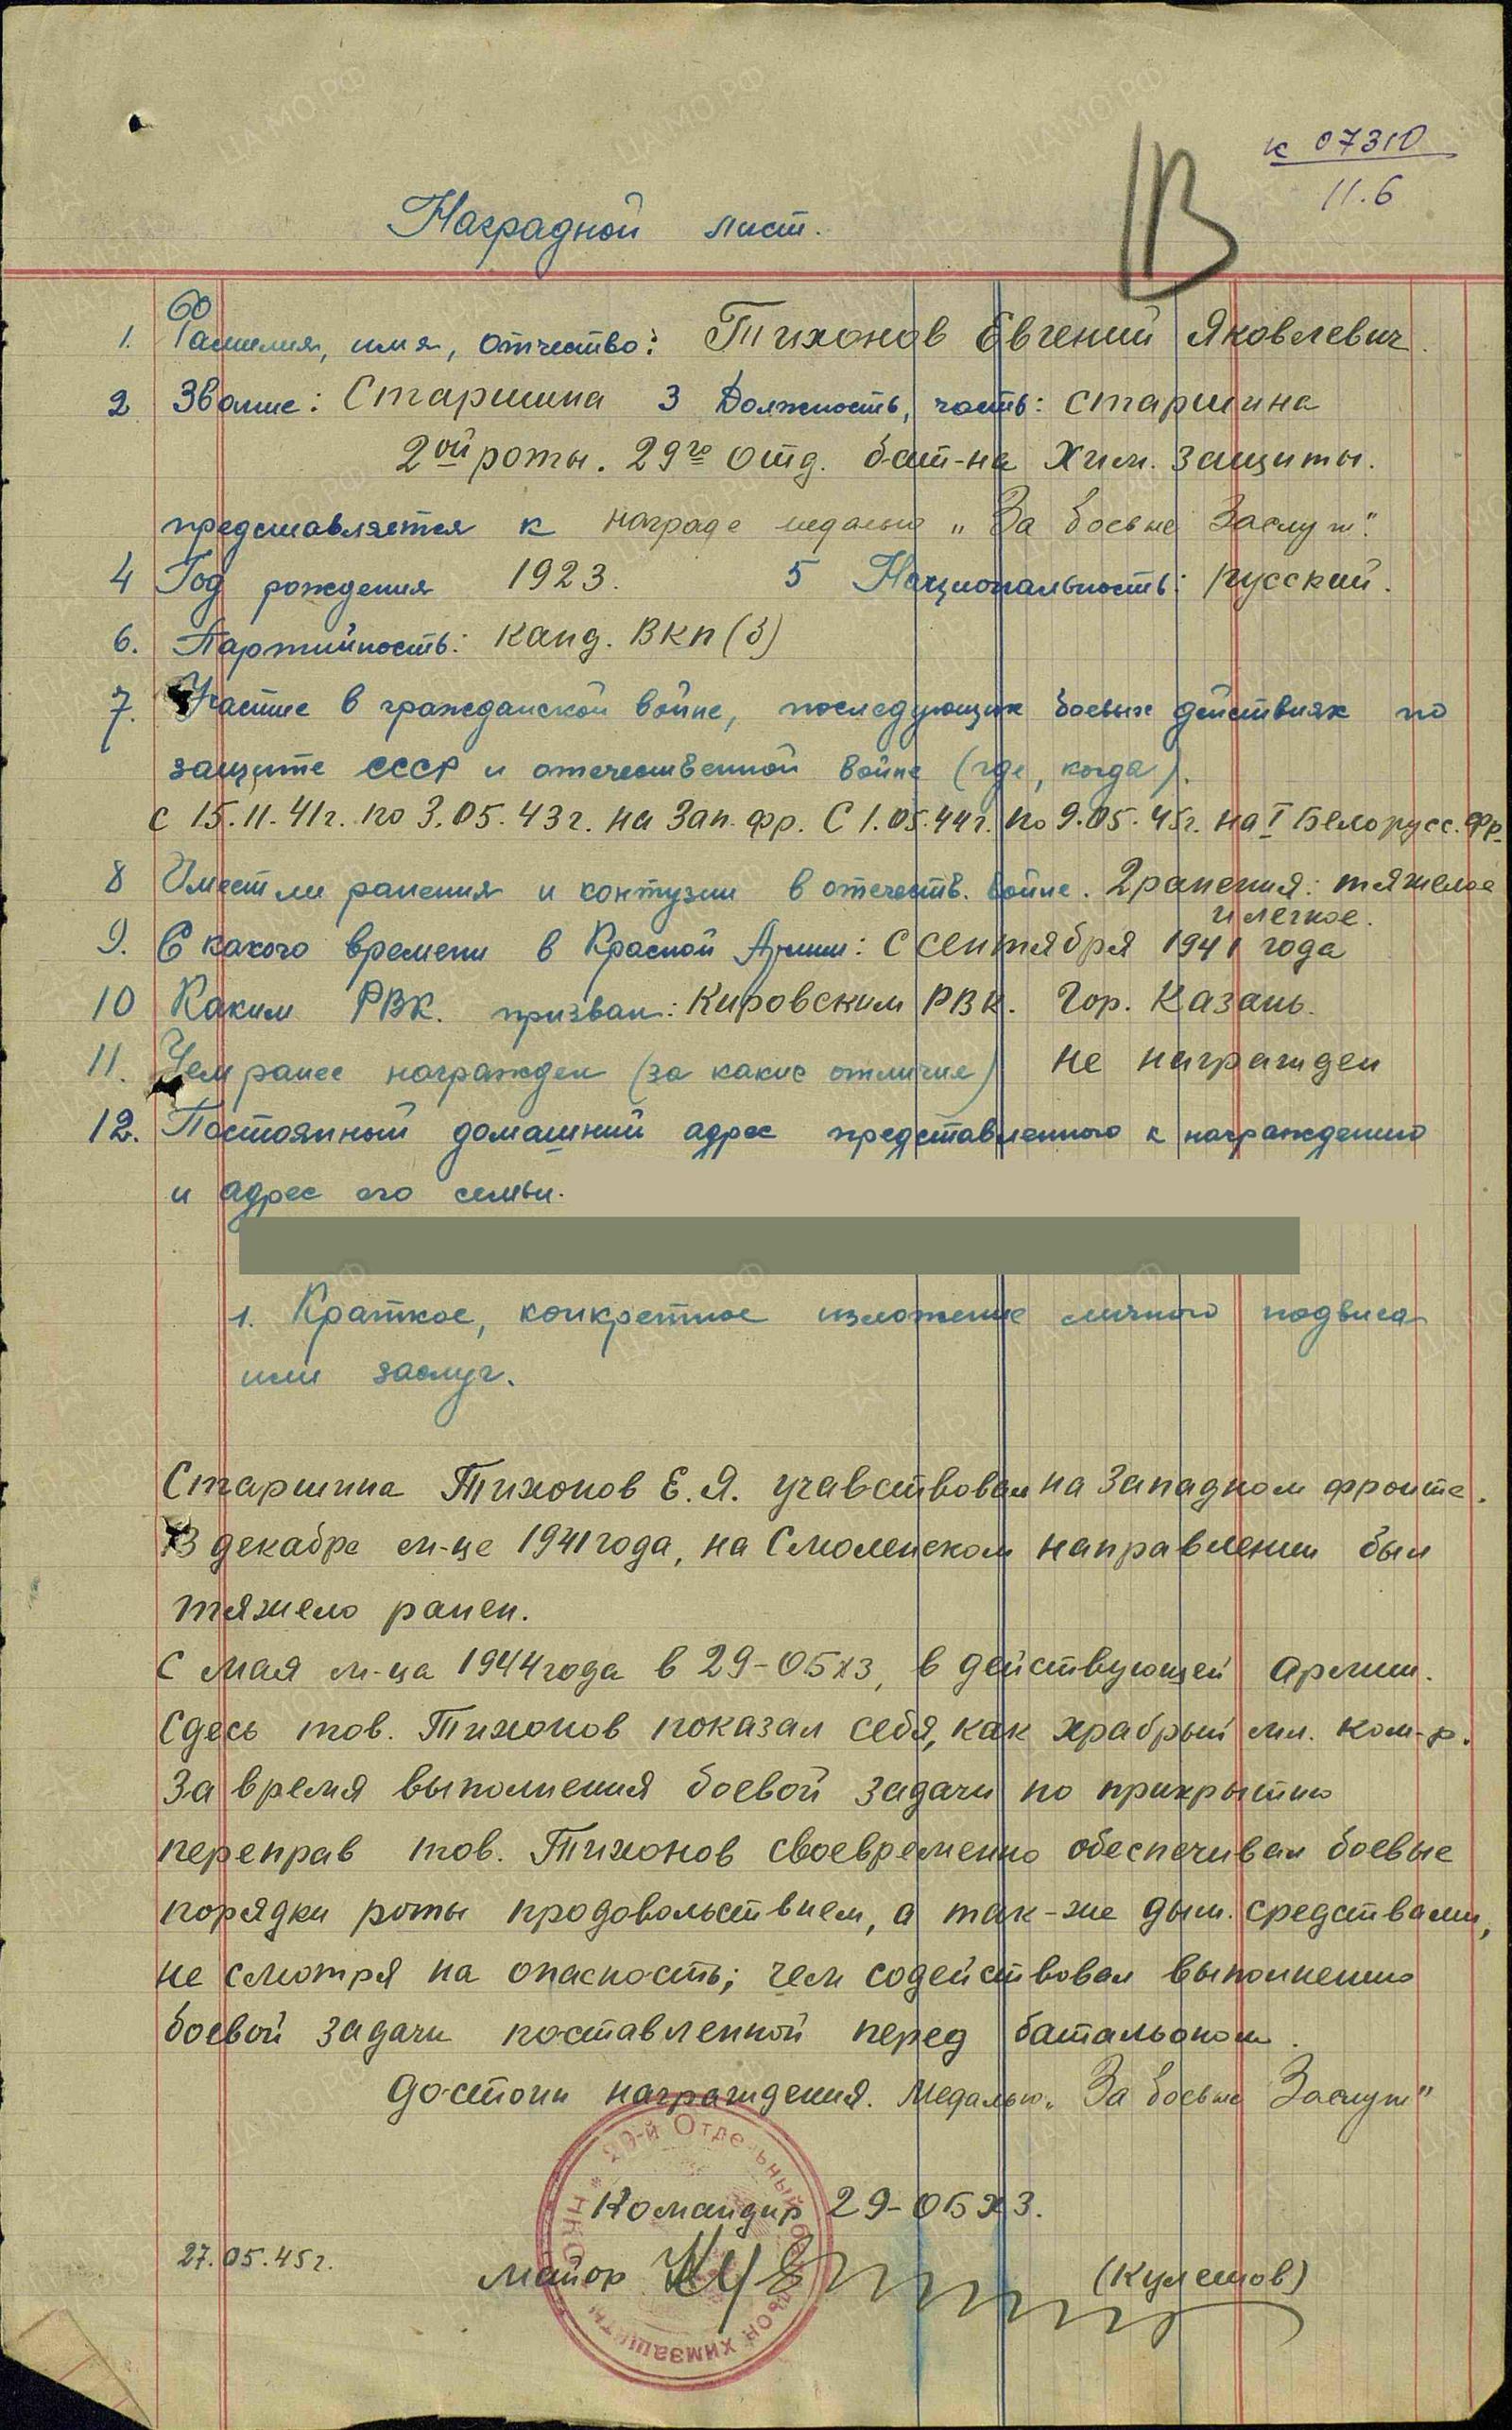 к 07310
11.6
В
Наградной лист.
1. Фамилия, имя, отчество: Тихонов Евгений Яковлевич.
2 Звание: Старшина 3 Должность, часть: старшина
2ой роты. 29го отд. бат-на хим. защиты.
представляется к награде медалью „За боевые Заслуги".
4 Год рождения 1923. 5 Национальность: русский.
6. Партийность: канд. ВКП(б)
7. Участие в гражданской войне, последующих боевых действиях по
защите СССР и отечественной войне (где, когда).
с 15.11.41г. по 3.05.43г. на Зап. фр. С 1.05.44г. по 9.05.45г. на I Белорусс. Фр.
8 Имеет ли ранения и контузии в отечеств. войне. 2 ранения: тяжелое
и легкое.
9. С какого времени в Красной Армии: С сентября 1941 года
10 Каким РВК. призван: Кировским РВК. Гор. Казань.
11. Чем ранее награжден (за какие отличия) не награжден
12. Постоянный домашний адрес представленного к награждению
и адрес его семьи.
1. Краткое, конкретное изложение личного подвига
или заслуг.
Старшина Тихонов Е.Я. учавствовал на Западном фронте.
В декабре м-це 1941 года, на Смоленском направлении был
тяжело ранен.
С мая м-ца 1944 года в 29-ОБХЗ, в действующей армии.
Сдесь тов. Тихонов показал себя, как храбрый мл. ком-р.
За время выполнения боевой задачи по прикрытию
переправ тов. Тихонов своевременно обеспечивал боевые
порядки роты продовольствием, а так-же дым. средствами,
не смотря на опасность; чем содействовал выполнению
боевой задачи поставленной перед батальоном.
Достоин награждения. Медалью „За боевые Заслуги"
29-й Отдельный батальон химзащиты
Командир 29-ОБХЗ.
27.05.45г.
майор (Кулешов)